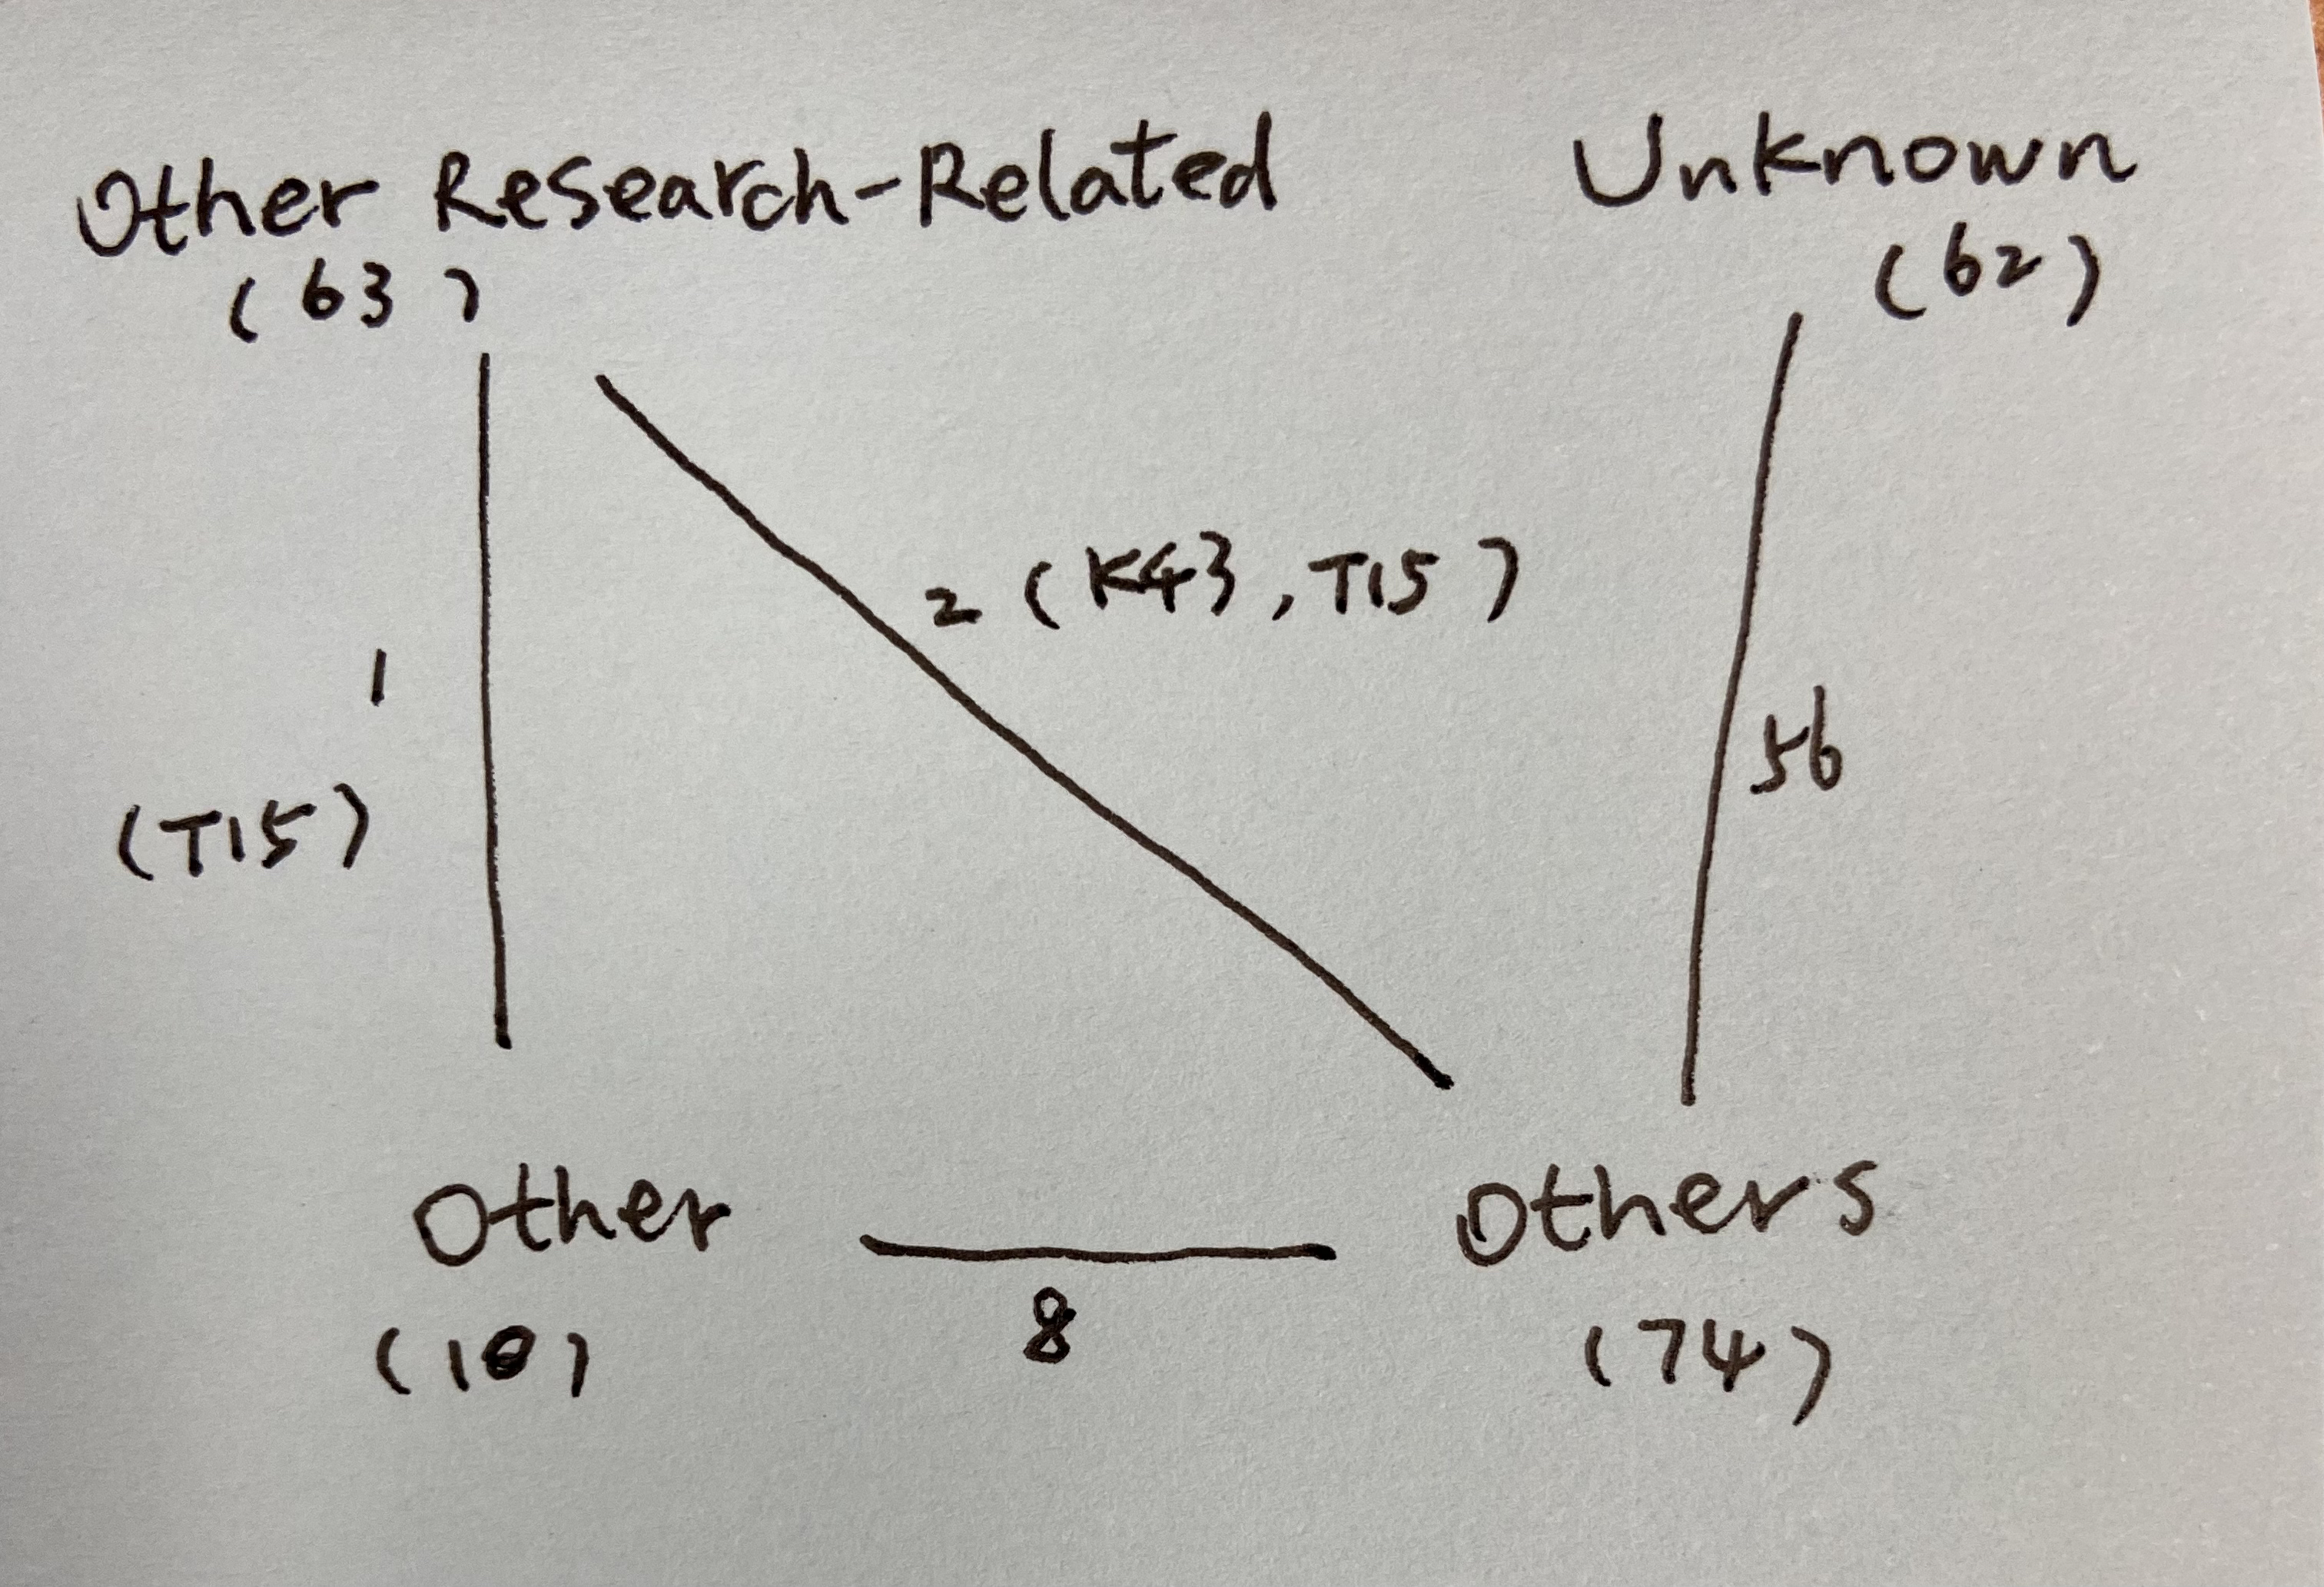 Other Research-Related
(63)
Unknown
(62)
2 (K43, T15)
1
(T15)
56
Other
(10)
8
Others
(74)